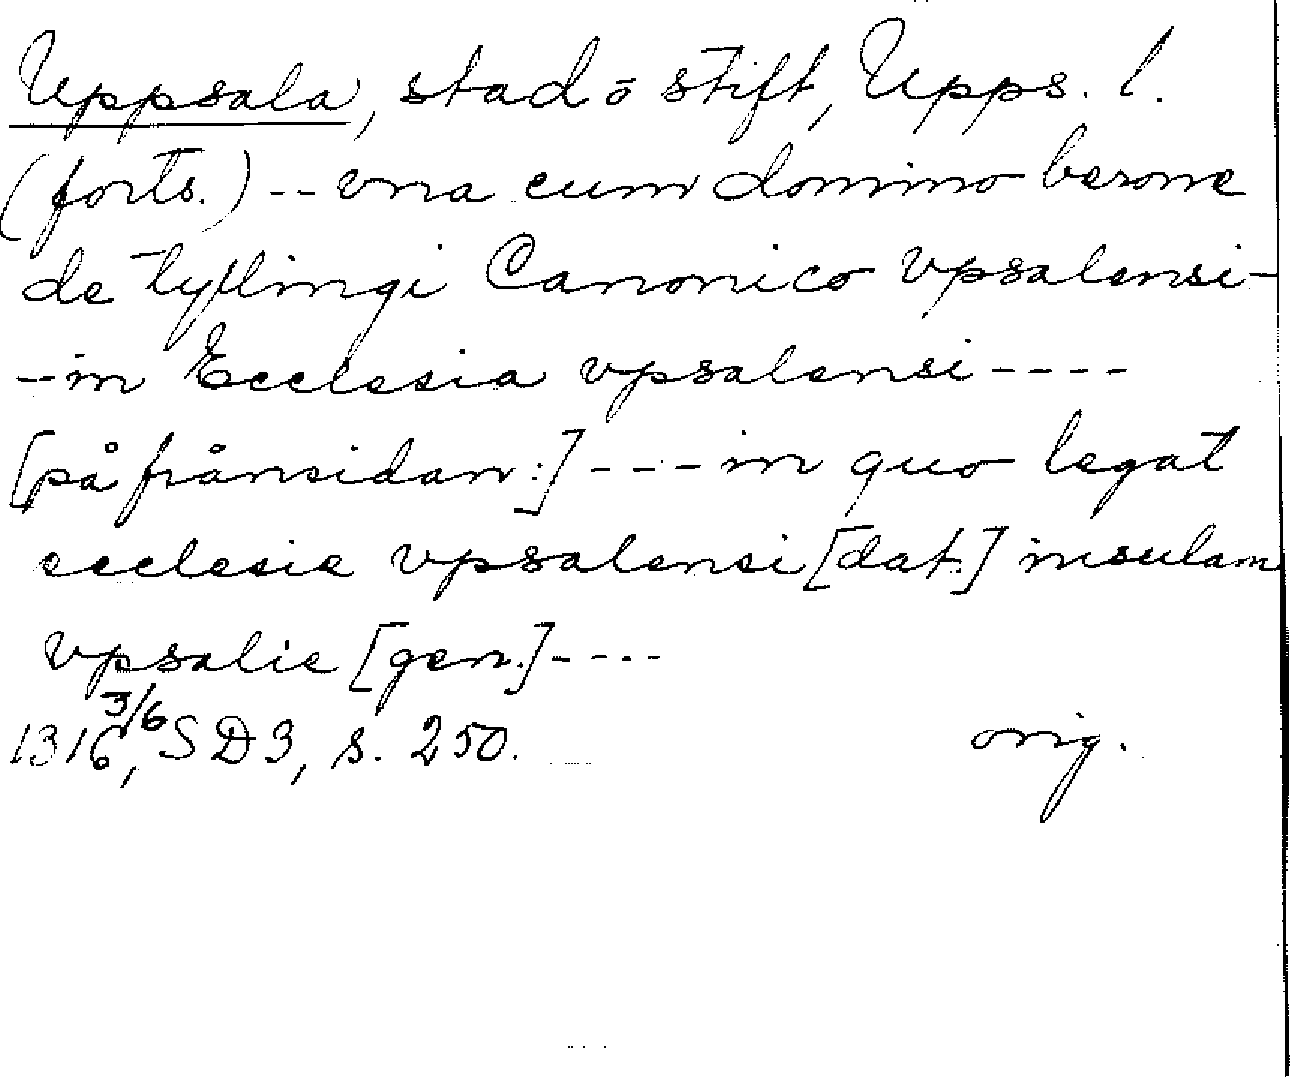 Uppsala, stad o stift, Upps. l.
(forts.) -- vna cum domino berone
de Canonico vpsalensi -
- in Ecclesia vpsalensi ----
[på frånsidan:] ---- in quo legat
ecclesie vpsalensi [dat.] insulam
vpsalie [gen.] ----
1316 3/6, SD3, s. 250. orig.